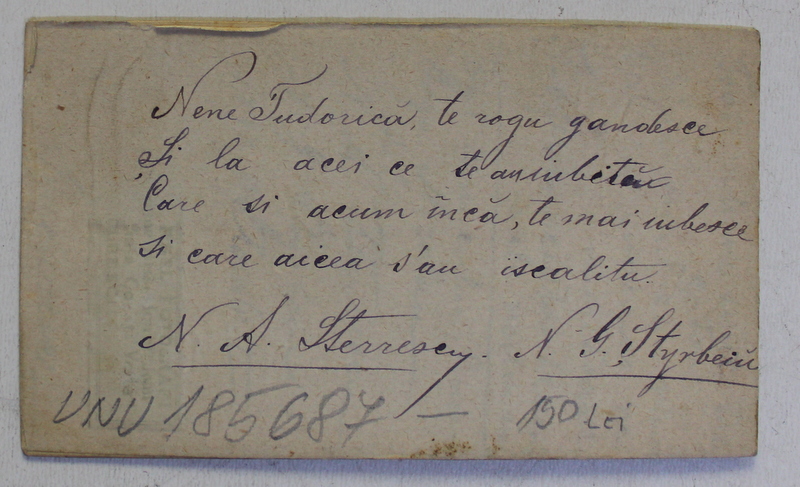 Nene Tudorică, te rogu gandesce
Și la acei ce te au iubitŭ
Care si acum încă, te mai iubesce
Si care aicea s'au iscalitu.
N. A. Sterrescu. N. G. Știrbeiŭ
VNU 185687 — 150 Lei